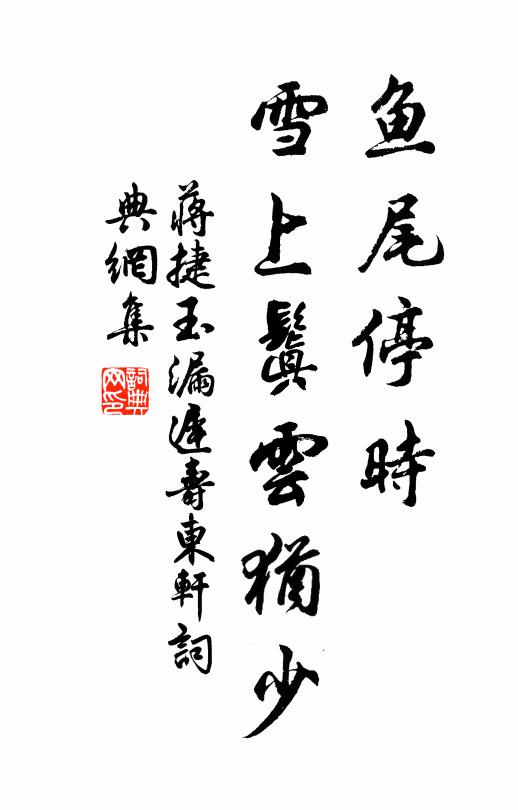 鱼尾停時
雪上鬒雲猶少
蔣捷玉漏遲壽東軒詞
典網集
詞典
网印